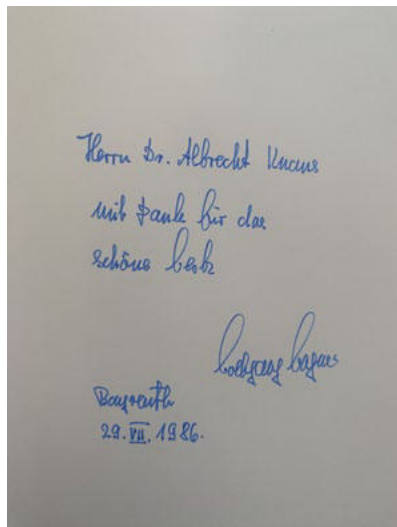 Herrn Dr. Albrecht Knaus
mit Dank für das
schöne Werk
Wolfgang Wagner
Bayreuth
29. VII. 1986.